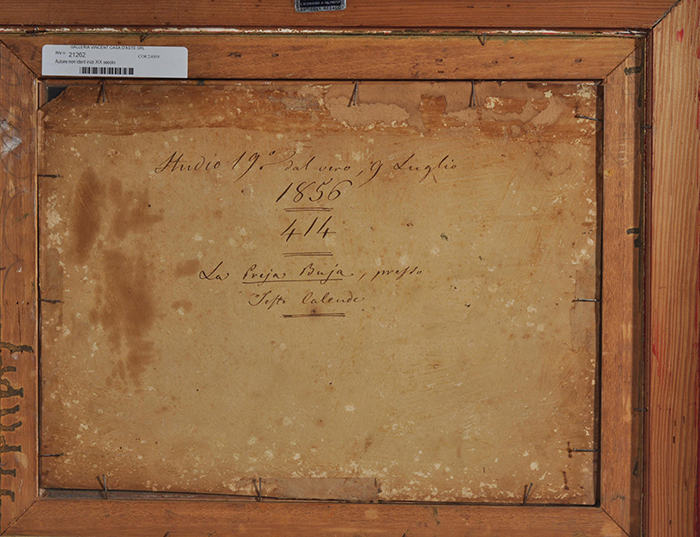 GALLERIA VINCENT CASA D'ASTE SRL
21262
Autore non ident.ein XIX secolo
Studio 19.° dal vero, 9 Luglio
1856
414
La Preja Buja, presso
Sesto Calende